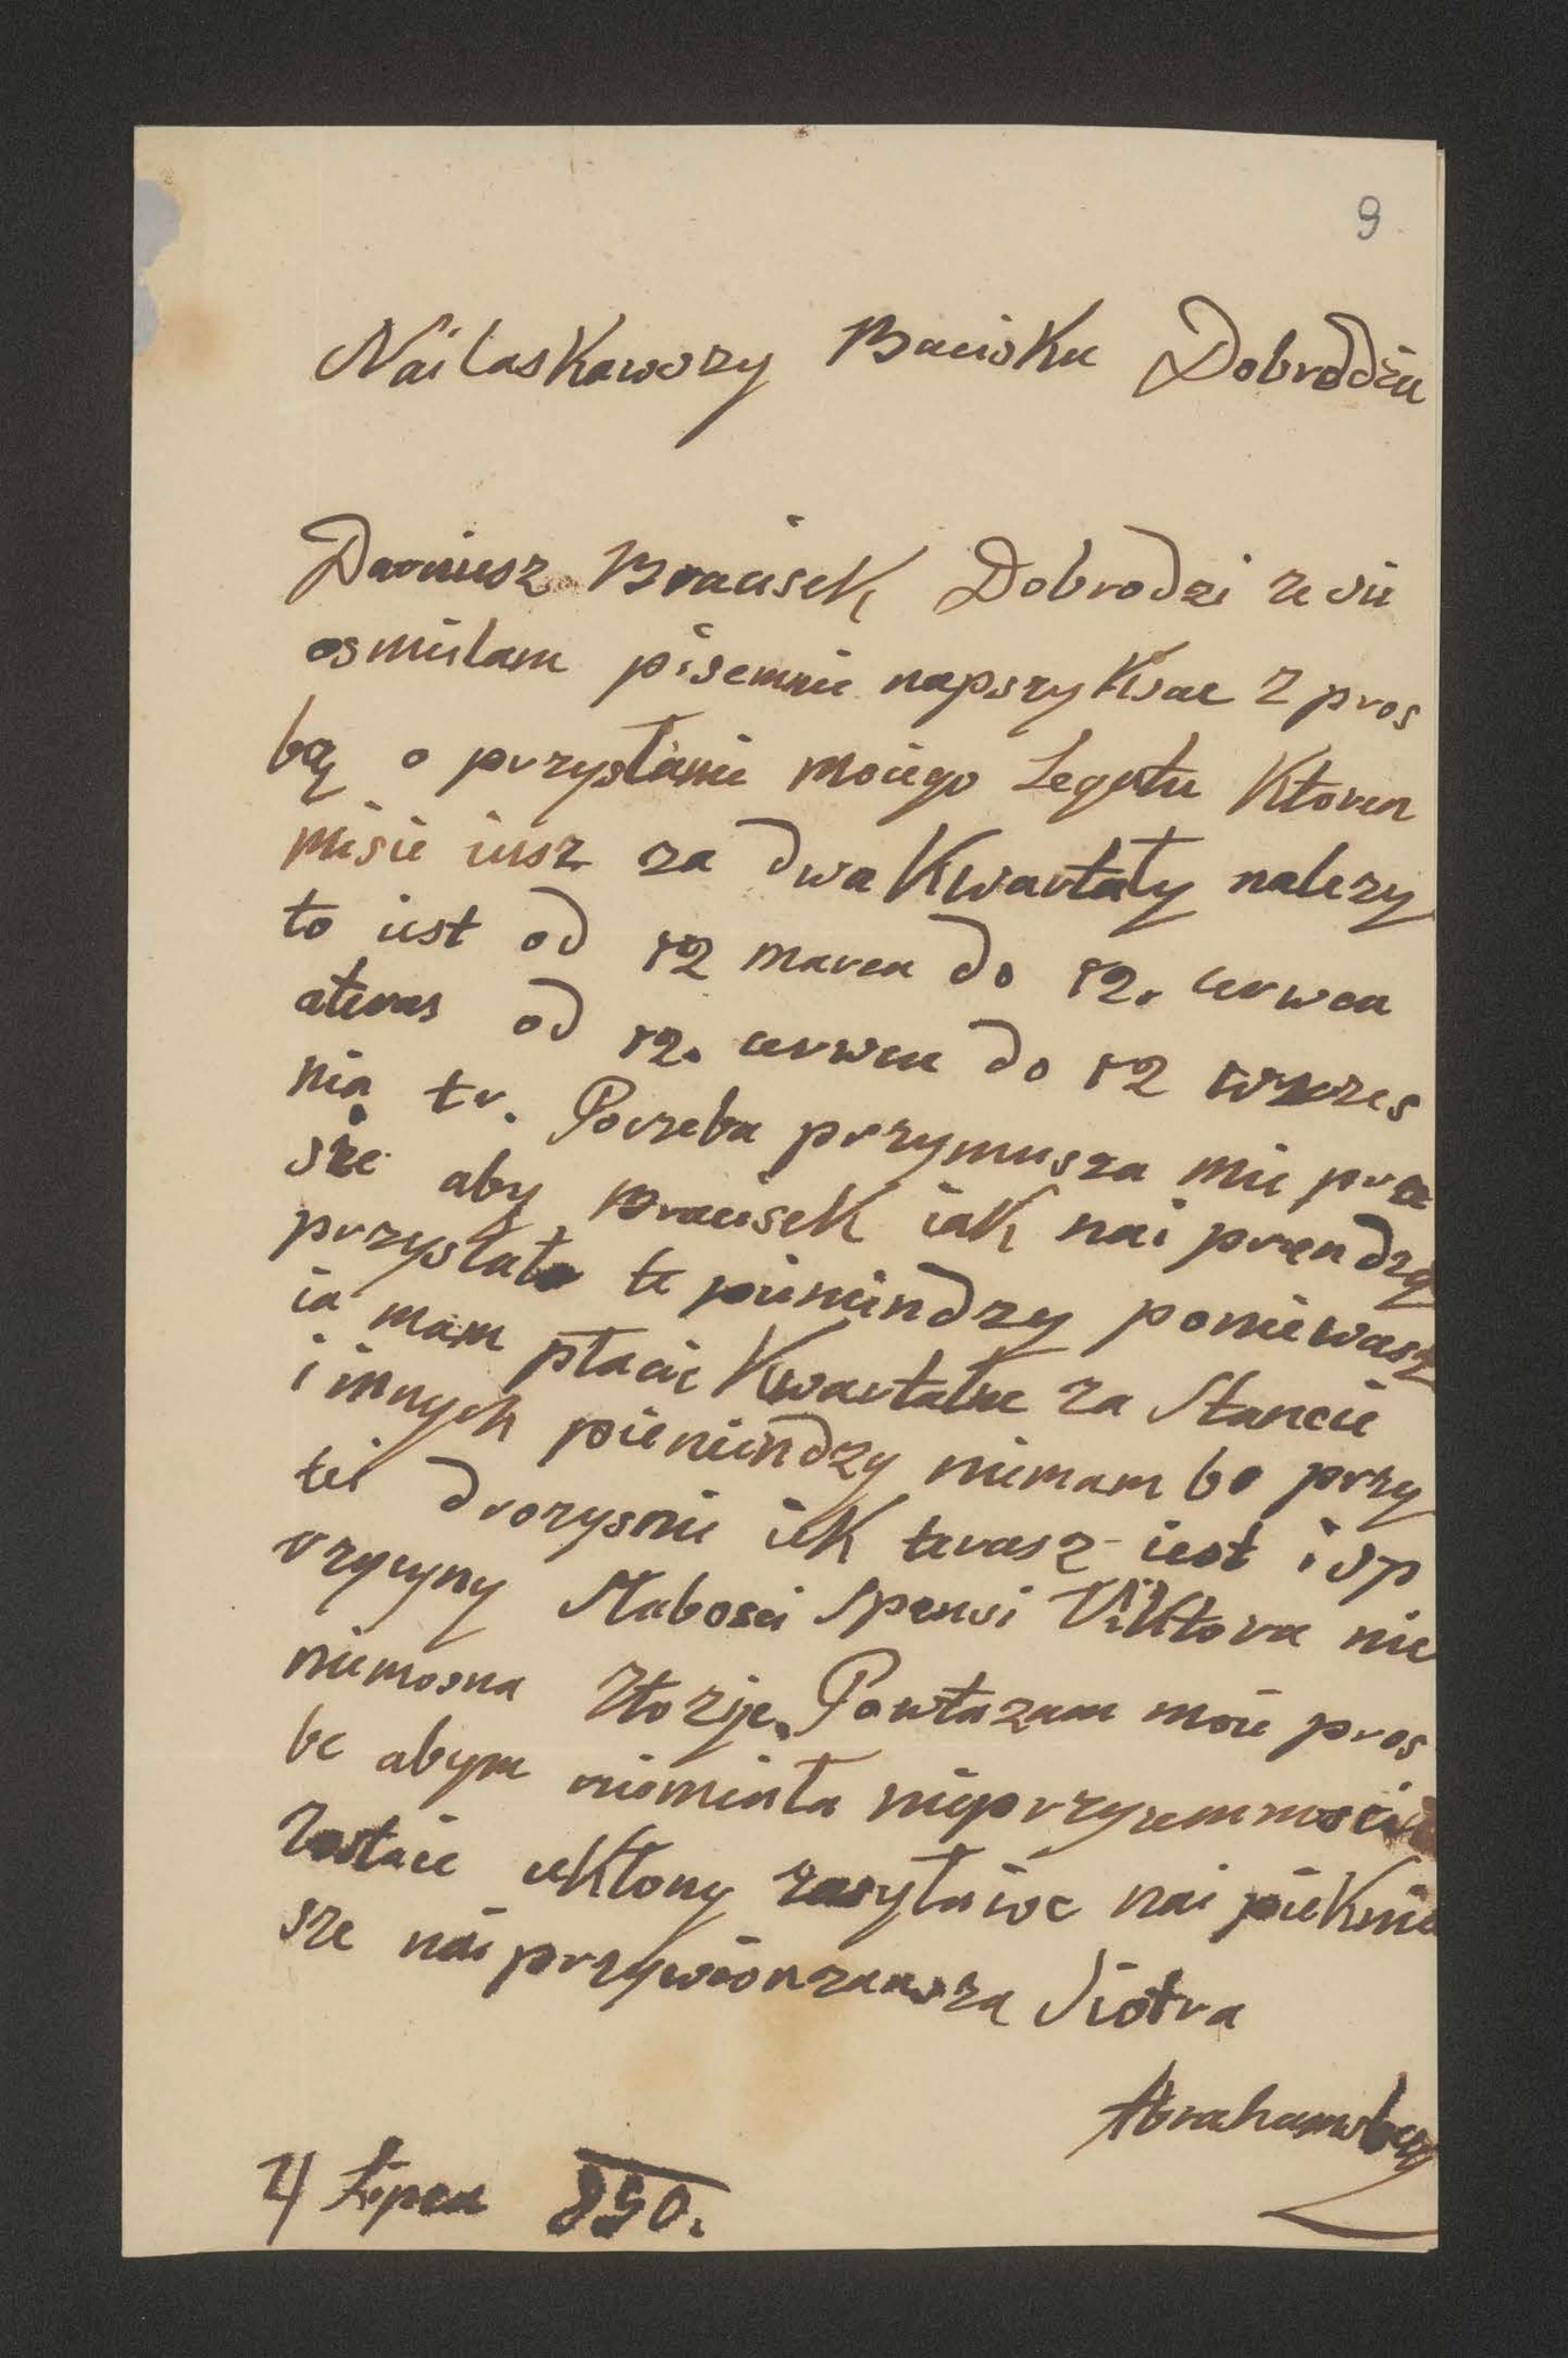 9
Nai laskawszy Bracisku Dobrodziu
Daruiesz Braciszek Dobrodzi ze sie
osmielam pisemnie naprzyksac z pros
bą o przysłanie moiego Legatu Ktoren
misie iusz za dwa Kwartały nalezy
to iest od 12 marca do 12. cerwca
ateras od 12. cerwca do 12 wrzes
nia tr. Poczeba przymusza mie pro
sze aby BraciseK iak nai prendzy
przysłał te pieniindzy poniewasz
ia mam płacic Kwartalne za Stancie
i innych pieniindzy nimam bo przy
tei drozysnie iek terasz iest i sp
rzycyny Słabosci Spensi ViKtora nic
niemosna złozyc. Powtazam moie pros
be abym niemiała nieprzyiemnosci
Zostaie ukłony zasyłaioc nai piekniei
sze nai przywionzansza Siotra
Abrahamsberg
4 Lipca 850.